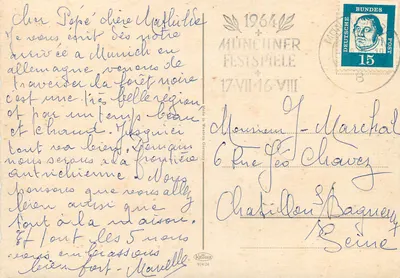 Cher Pépé chère Mathilde
je vous écrit dès notre
arrivée a Munich en
allemagne venons de
traverser la forêt noire
c'est une très belle région
et par un temps beau
et chaud. Jusqu'ici
tout va bien. Demain
nous serons à la frontière
autrichienne. Nous
pensons que vous allez
bien ainsi que
tout à la maison.
Et tous les 5 nous
vous embrassons
bien fort - Marcelle
1964
MÜNCHNER
FESTSPIELE
17·VII-16·VIII
DEUTSCHE BUNDESPOST
15
8
Monsieur J- Marchal
6 Rue Léo Chavez
Chatillon s/ Bagneux
Seine